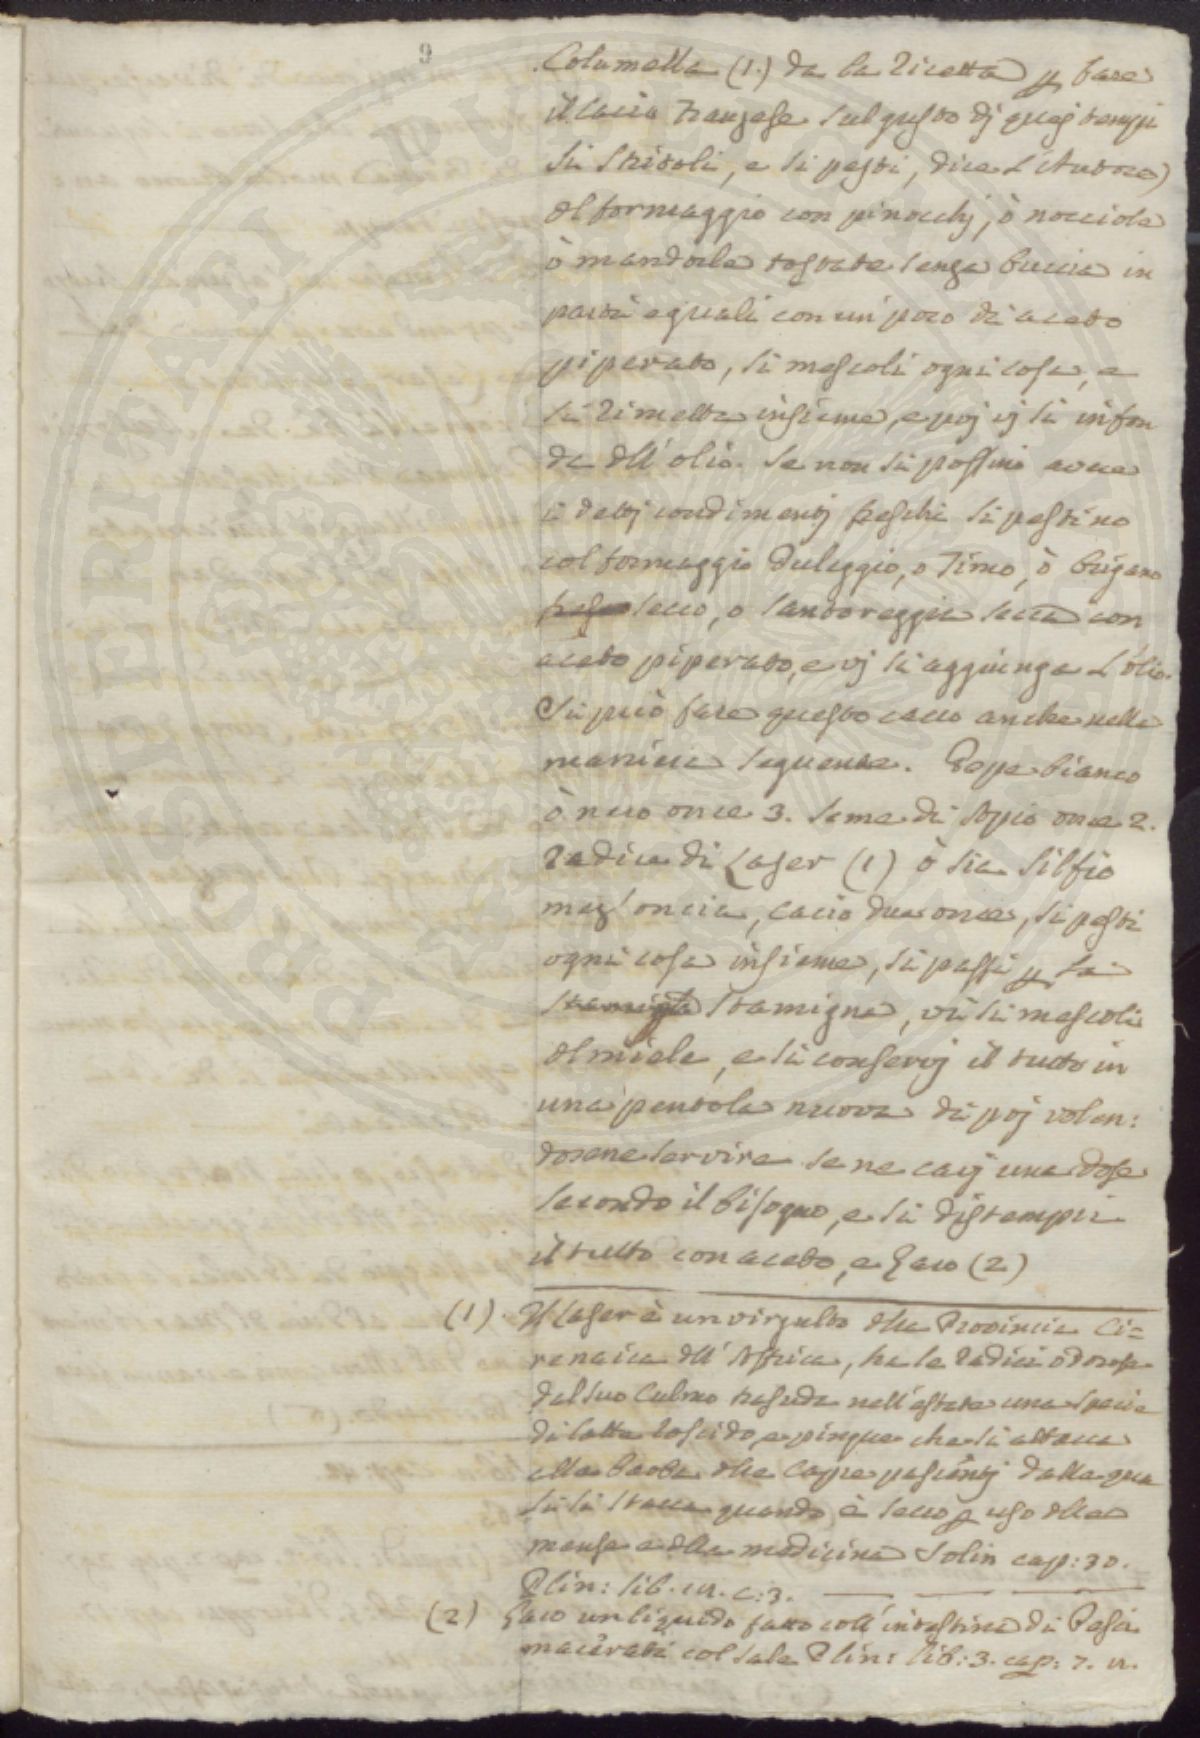 9
Columella (1.) da la ricetta p fare
il cacio franzese sul gusto dj quej tempi
Si stritoli, e si pesti, dice l'Autore)
del formaggio con pinocchj, ò nocciole
ò mandorle tostate senza buccia in
parti eguali con un poco di aceto
piperato, si mescoli ogni cosa, e
si rimetta insieme, e poj vj si infon
da dell'olio. Se non si possino avere
i dettj condimentj freschi si pestino
col formaggio Puleggio, o Timo, ò Origano
secco, o santoreggia secca con
aceto piperato, e vj si aggiunga l'olio.
Si può fare questo cacio anche nella
maniera seguente. Pepe bianco
ò nero once 3. seme di Apio once 2.
radica di Laser (1) ò sia silfio
mezz'oncia, cacio due once, si pesti
ogni cosa insieme, si passi p la
stamigna stamigna, vi si mescoli
del miele, e si conservj il tutto in
una pentola nuova di poj volen:
dosene servire se ne cavj una dose
secondo il bisogno, e si distempri
il tutto con aceto, e Garo (2)
(1). Il laser è un virgulto della Provincia Ci=
renaica dell'Affrica, ha le radici odorose
dal suo Culmo trasuda nell'estate una specie
di latte roscido, e pingue che si attacca
alla barba delle Capre pascentj dalla qua
le si stacca quando è secco p uso della
mensa e della medicina Solin cap: 30.
Plin: lib. c: 3.
(2) Garo un liquido fatto coll'intestina di Pesci
macerati col sale Plin: lib: 3. cap: 7.
PROSPERITATI PUBLICAE